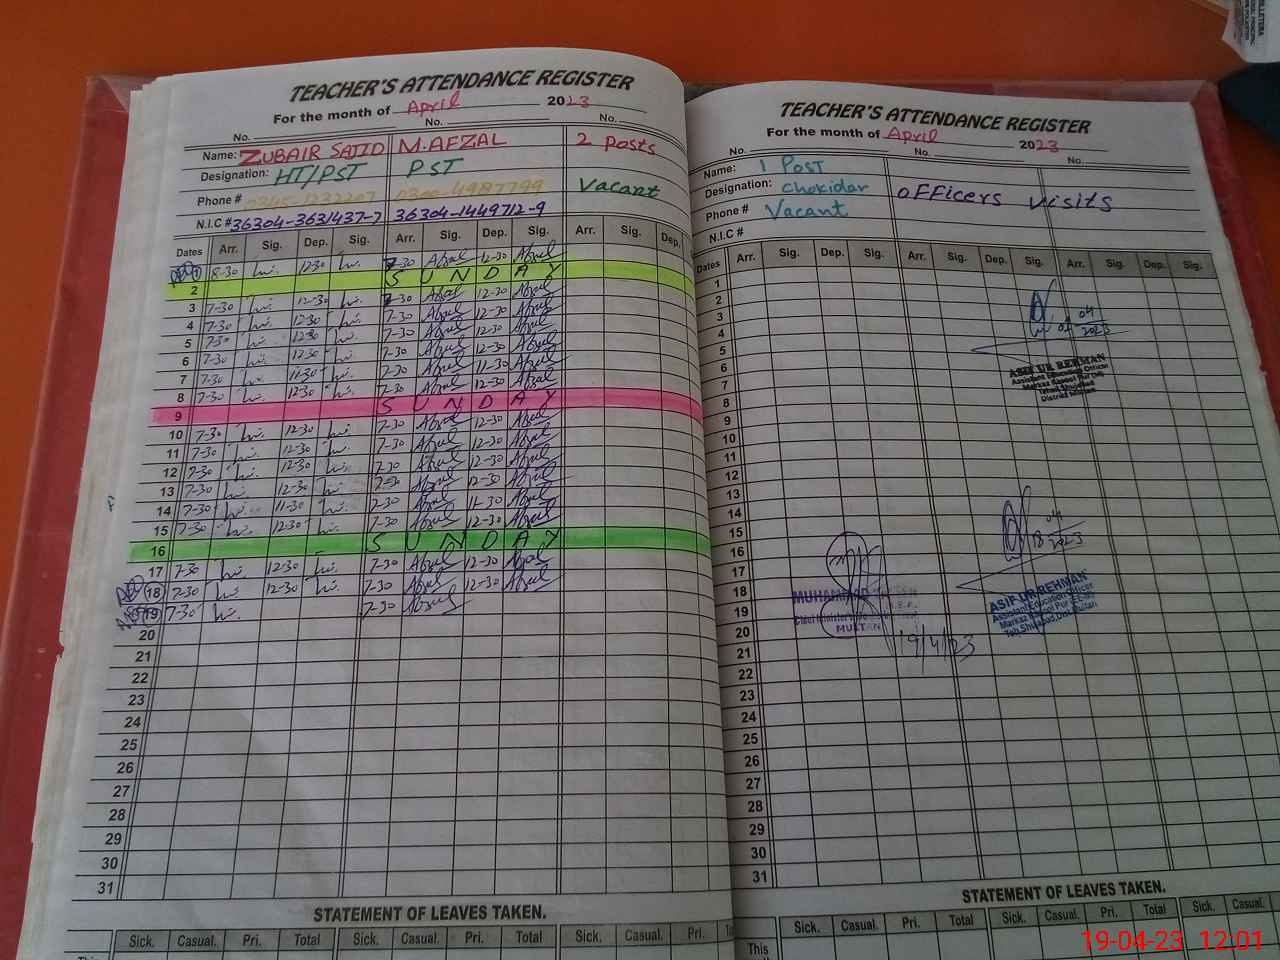 TEACHER'S ATTENDANCE REGISTER
For the month of April 2023
No. No. No.
Name: ZUBAIR SAJID M.AFZAL 2 Posts
Designation: HT/PST PST
Phone # Vacant
N.I.C # 36304-3631437-7 36304-1449712-9
Dates Arr. Sig. Dep. Sig. Arr. Sig. Dep. Sig. Arr. Sig. Dep.
1 8-30 12-30 7-30 Afzal 12-30 Afzal
2 SUNDAY
3 7-30 12-30 7-30 Afzal 12-30 Afzal
4 7-30 12-30 7-30 Afzal 12-30 Afzal
5 7-30 12-30 7-30 Afzal 12-30 Afzal
6 7-30 12-30 7-30 Afzal 12-30 Afzal
7 7-30 11-30 7-30 Afzal 11-30 Afzal
8 7-30 12-30 7-30 Afzal 12-30 Afzal
9 SUNDAY
10 7-30 12-30 7-30 Afzal 12-30 Afzal
11 7-30 12-30 7-30 Afzal 12-30 Afzal
12 7-30 12-30 7-30 Afzal 12-30 Afzal
13 7-30 12-30 7-30 Afzal 12-30 Afzal
14 7-30 11-30 7-30 Afzal 11-30 Afzal
15 7-30 12-30 7-30 Afzal 12-30 Afzal
16 SUNDAY
17 7-30 12-30 7-30 Afzal 12-30 Afzal
18 7-30 12-30 7-30 Afzal 12-30 Afzal
19 7-30 7-30 Afzal
20
21
22
23
24
25
26
27
28
29
30
31
STATEMENT OF LEAVES TAKEN.
Sick. Casual. Pri. Total Sick. Casual. Pri. Total Sick. Casual. Pri.
This
TEACHER'S ATTENDANCE REGISTER
For the month of April 2023
No. No. No.
Name: 1 Post
Designation: Chokidar officers visits
Phone # Vacant
N.I.C #
Dates Arr. Sig. Dep. Sig. Arr. Sig. Dep. Sig. Arr. Sig. Dep. Sig.
1
2
3
4
5
6
7
8
9
10
11
12
13
14
15
16
17
18
19
20
21
22
23
24
25
26
27
28
29
30
31
04
2023
ASIF UR REHMAN
Assistant Education Officer
18 04
2023
ASIF UR REHMAN
Assistant Education Officer
MUHAMMAD
MULTAN
19/4/23
STATEMENT OF LEAVES TAKEN.
Sick. Casual. Pri. Total Sick. Casual. Pri. Total Sick. Casual.
This
19-04-23 12:01